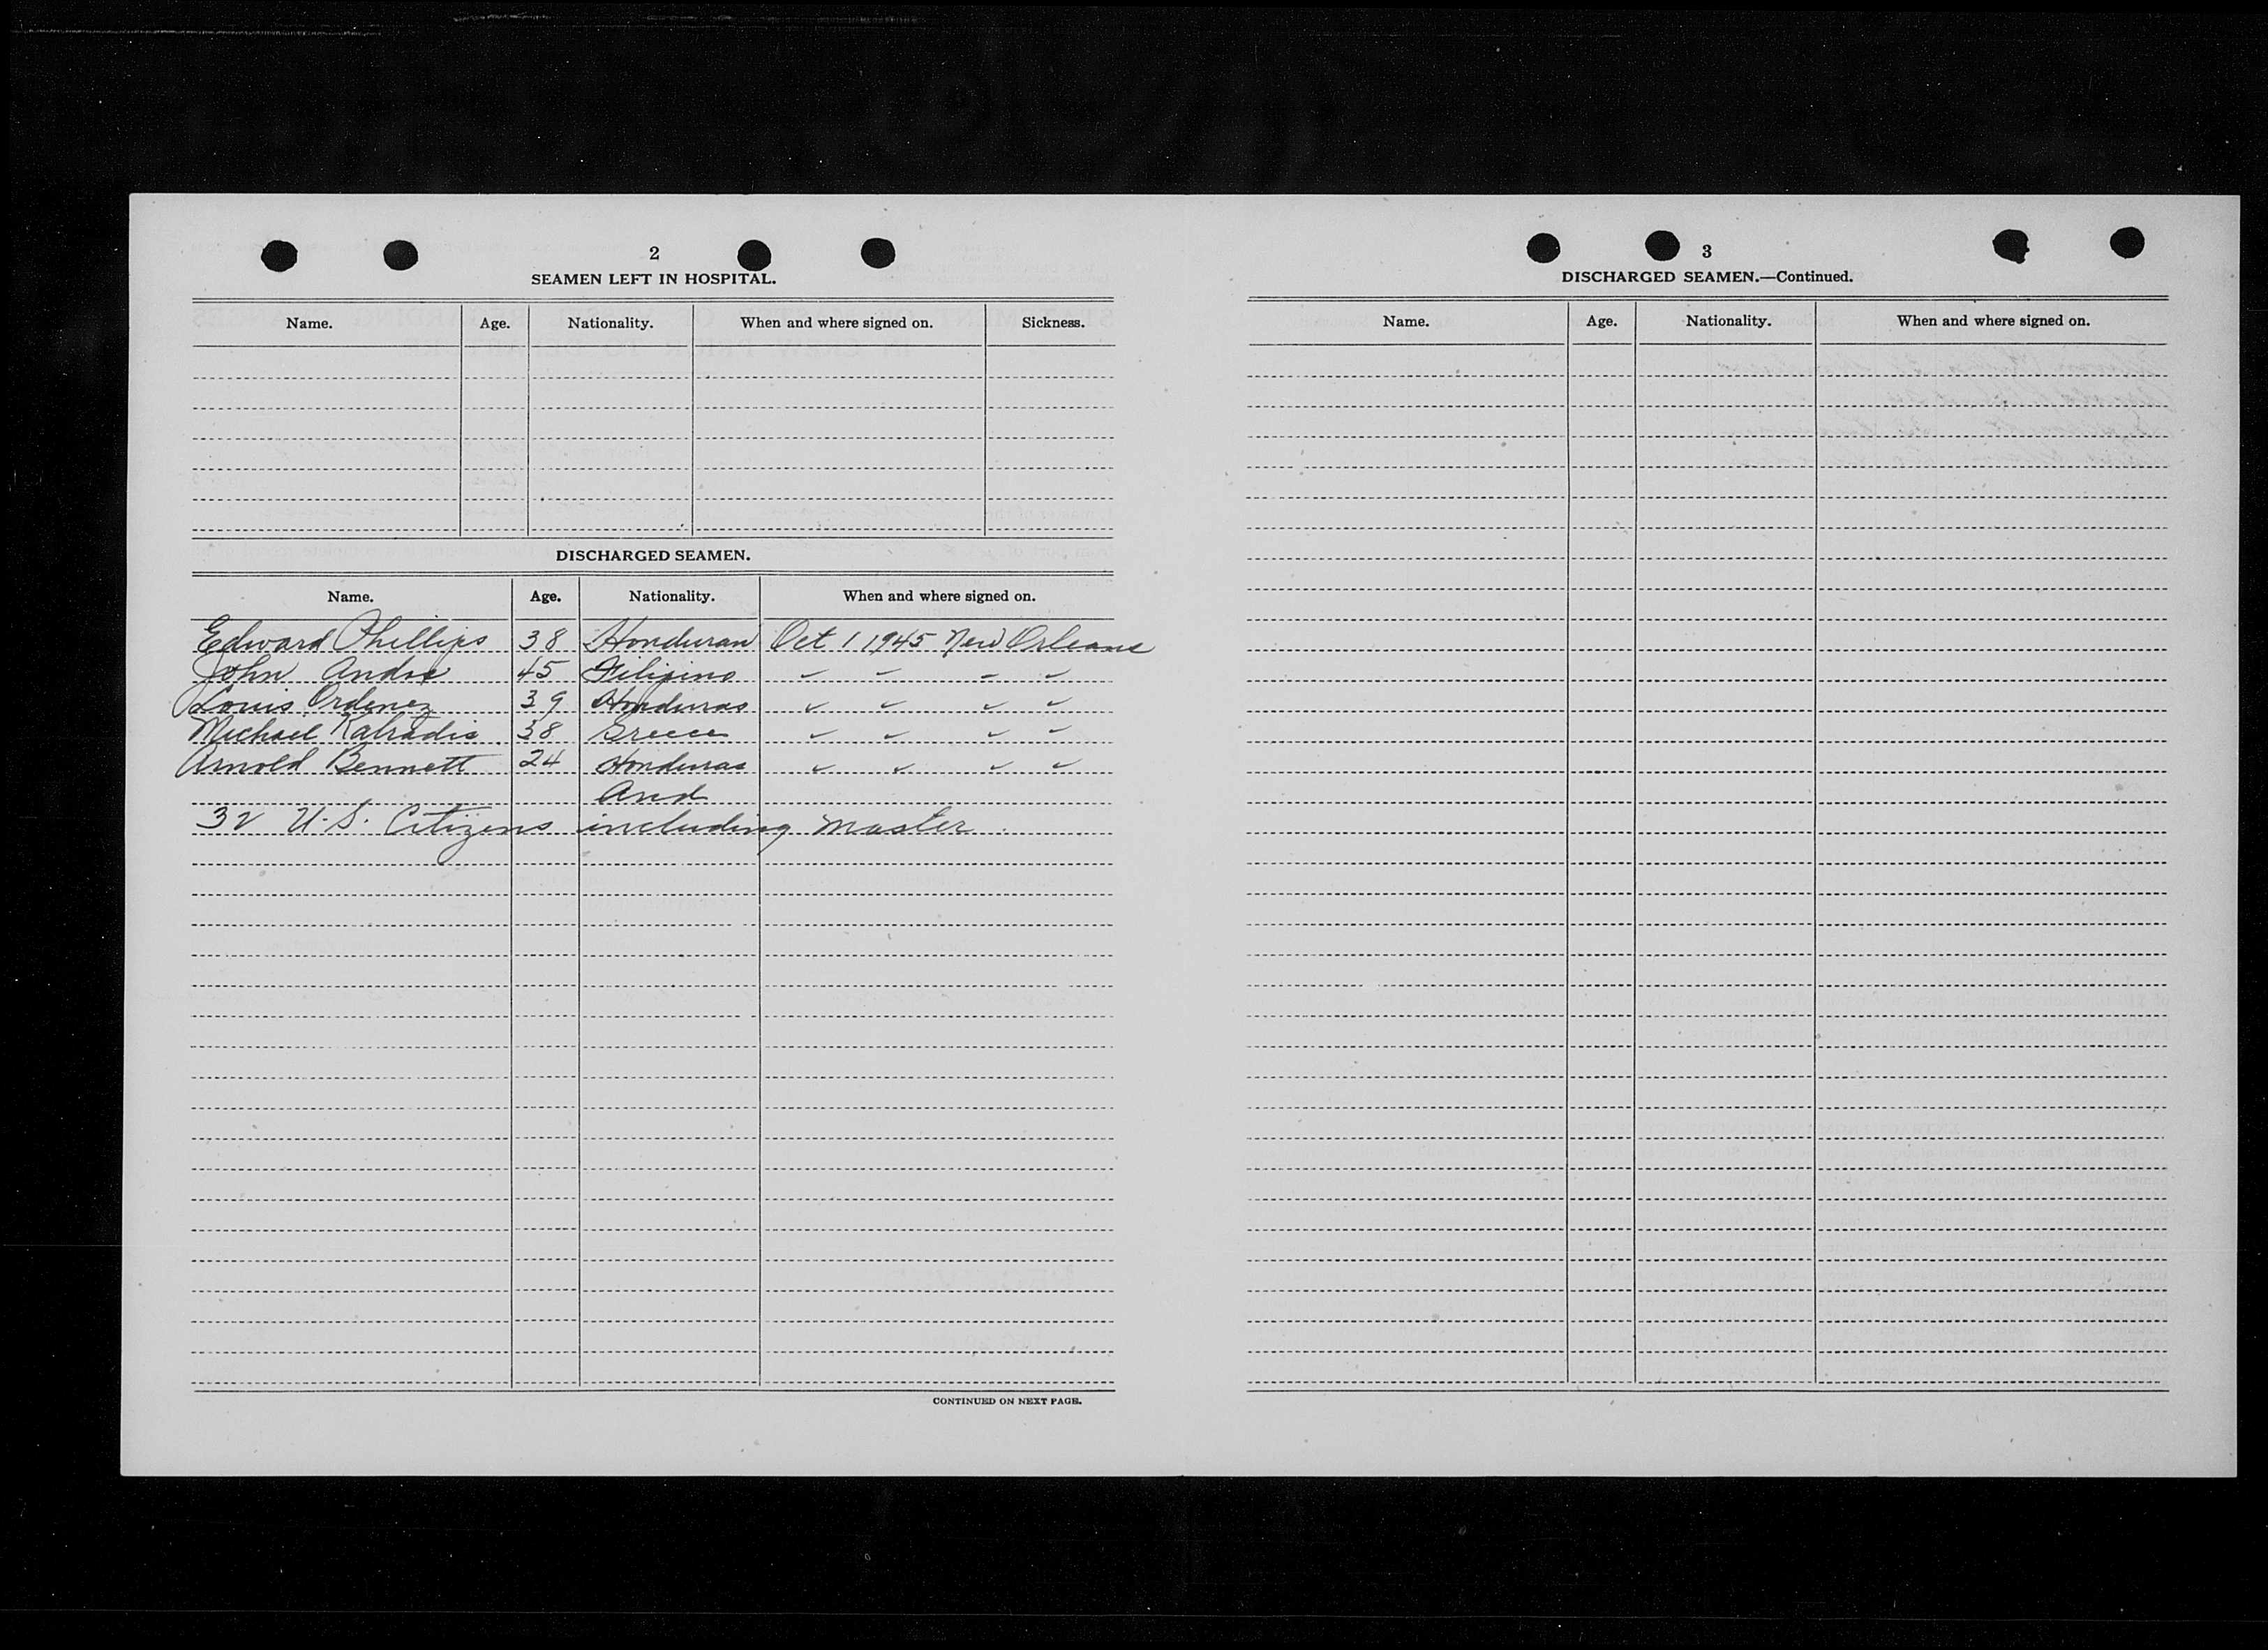 2
SEAMEN LEFT IN HOSPITAL.
Name. Age. Nationality. When and where signed on. Sickness.
DISCHARGED SEAMEN.
Name. Age. Nationality. When and where signed on.
Edward Phillips 38 Honduran Oct 1 1945 New Orleans
John Andre 45 Filipino " " " "
Louis Ordenez 39 Honduras " " " "
Michael 38 Greece " " " "
Arnold Bennett 24 Honduras " " " "
And
32 U.S. Citizens including master.
CONTINUED ON NEXT PAGE.
3
DISCHARGED SEAMEN.—Continued.
Name. Age. Nationality. When and where signed on.